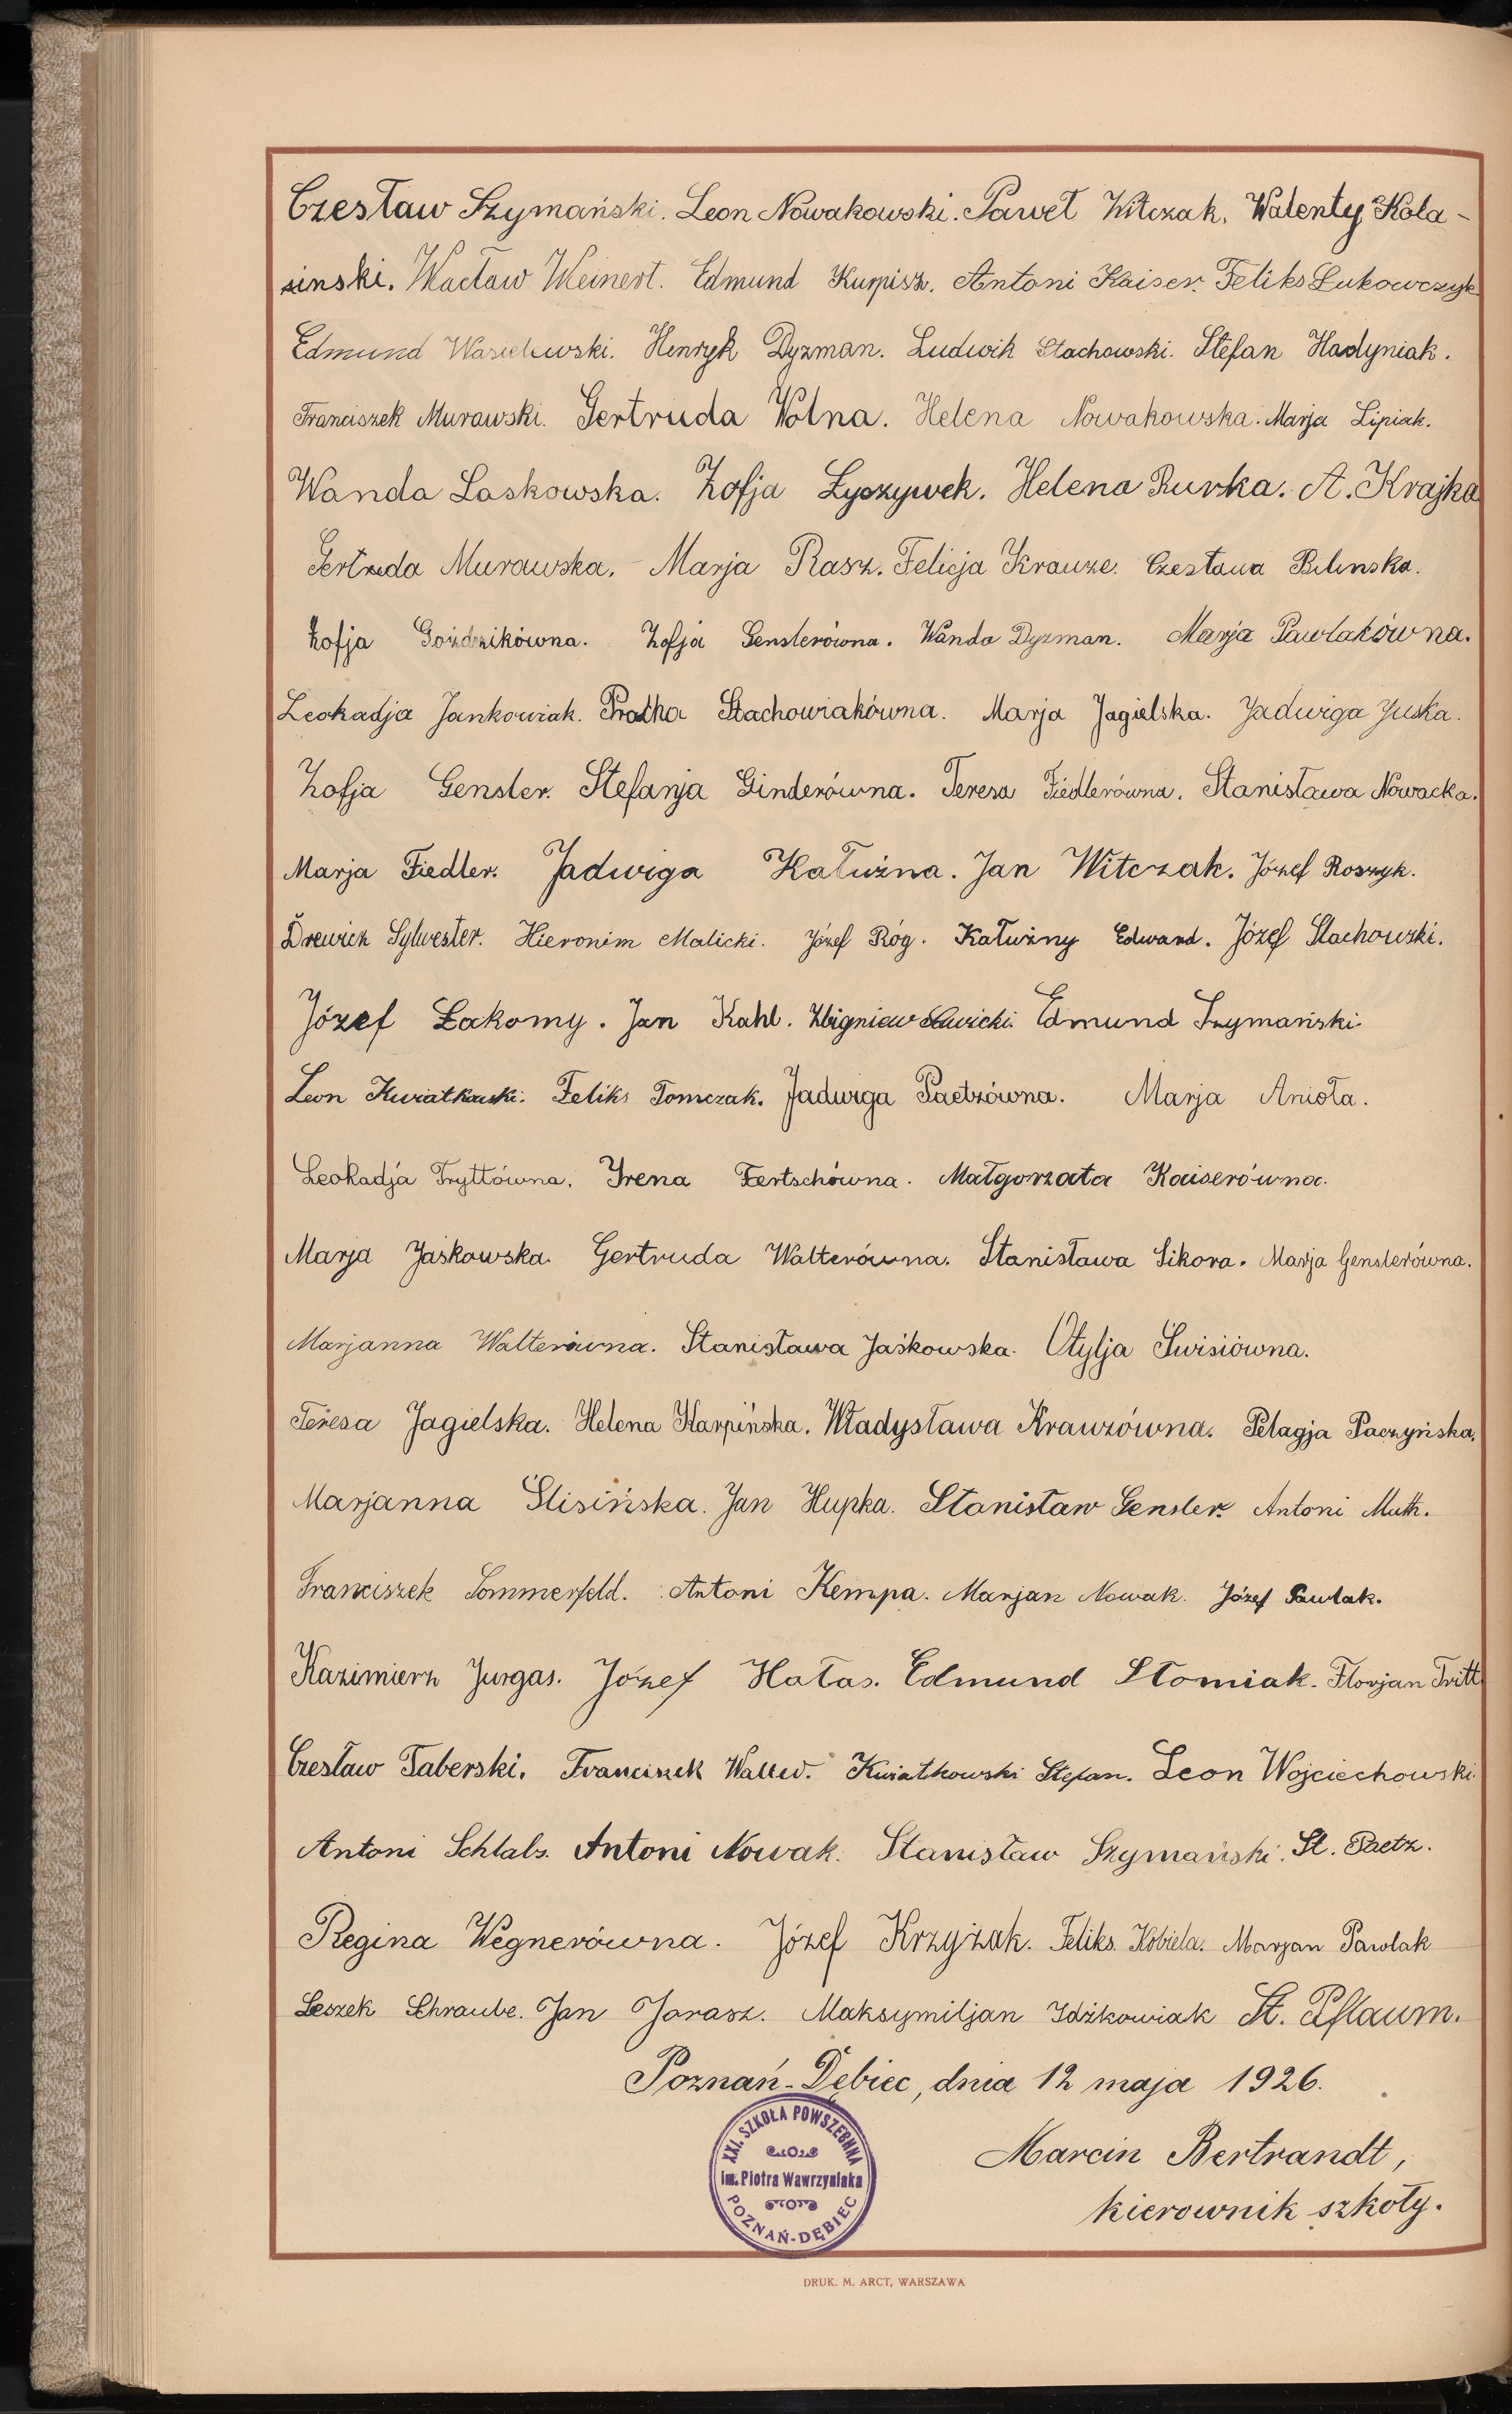 Czesław Szymański. Leon Nowakowski. Paweł Witczak. Walenty Kola-
sinski. Wacław Weinert. Edmund Kurpisz. Antoni Kaiser. Feliks Łukowczyk.
Edmund Wasielewski. Henryk Dyzman. Ludwik Stachowski. Stefan Hadyniak.
Franciszek Murawski. Gertruda Wolna. Helena Nowakowska. Marja Lipiak.
Wanda Laskowska. Zofja Łyszywek. Helena Rurka. A. Krajka
Gertruda Murawska. Marja Rasz. Felicja Krauze. Czesława Bilinska.
Zofja Goździkówna. Zofja Genslerówna. Wanda Dyzman. Marja Pawlakówna.
Leokadja Jankowiak. Stachowiakówna. Marja Jagielska. Jadwiga Juska.
Zofja Gensler. Stefanja Ginderówna. Teresa Fiedlerówna. Stanisława Nowacka.
Marja Fiedler. Jadwiga Kałużna. Jan Witczak. Józef Roszyk.
Drewicz Sylwester. Hieronim Malicki. Józef Róg. Kałużny Edward. Józef Stachowski.
Józef Łakomy. Jan Kahl. Zbigniew Edmund Szymański.
Leon Kwiatkowski. Feliks Tomczak. Jadwiga Paetzówna. Marja Anioła.
Leokadja Tryttówna. Irena Fertschówna. Małgorzata Kaiserówna.
Marja Jaśkowska. Gertruda Walterówna. Stanisława Sikora. Marja Genslerówna.
Marjanna Walterówna. Stanisława Jaśkowska. Otylja Świsiówna.
Teresa Jagielska. Helena Karpińska. Władysława Krauzówna. Pelagja Paczyńska.
Marjanna Ślisińska. Jan Hupka. Stanisław Gensler. Antoni Muth.
Franciszek Sommerfeld. Antoni Kempa. Marjan Nowak. Józef Pawlak.
Kazimierz Jurgas. Józef Hałas. Edmund Słomiak. Florjan Tritt.
Czesław Taberski. Franciszek Kwiatkowski Stefan. Leon Wojciechowski.
Antoni Schlabs. Antoni Nowak. Stanisław Szymański. St. Paetz.
Regina Wegnerówna. Józef Krzyżak. Feliks Kobiela. Marjan Pawlak
Leszek Schraube. Jan Jarasz. Maksymiljan Idźkowiak St. Pflaum.
Poznań-Dębiec, dnia 12 maja 1926.
XXI. SZKOŁA POWSZECHNA
im. Piotra Wawrzyniaka
POZNAŃ-DĘBIEC
Marcin Bertrandt,
kierownik szkoły.
DRUK. M. ARCT, WARSZAWA